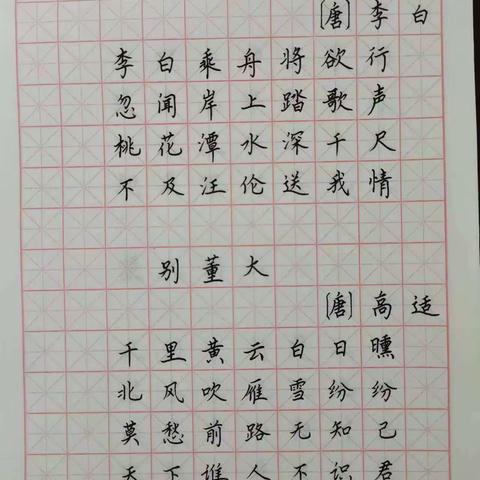 [唐]李白
李白乘舟将欲行
忽闻岸上踏歌声
桃花潭水深千尺
不及汪伦送我情
别董大
[唐]高适
千里黄云白日曛
北风吹雁雪纷纷
莫愁前路无知己
天下谁人不识君